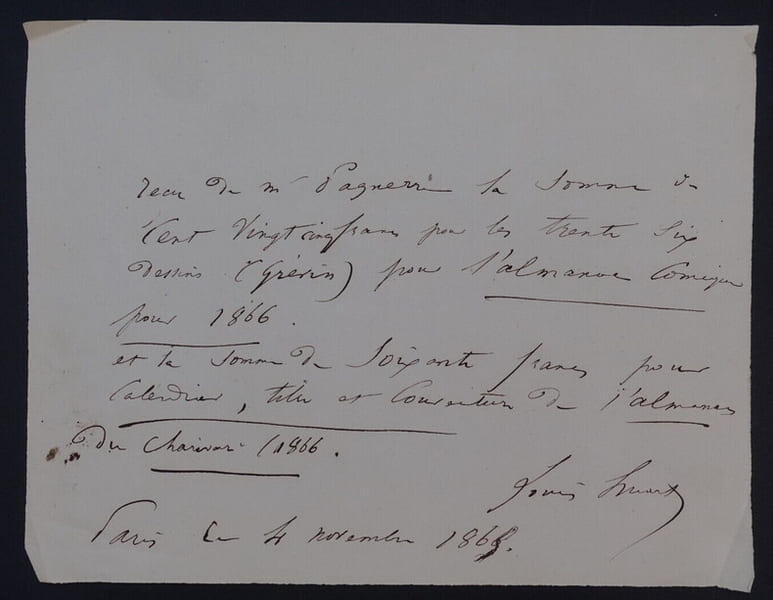 recu de mr Pagnerre la Somme de
Cent Vingt cinq francs pour les trente Six
dessins (Grévin) pour l'almanac Comique
pour 1866.
et la Somme de Soixante francs pour
Calendrier, titre et Couverture de l'almanac
du Charivari (1866.
Louis Huart
Paris Le 4 novembre 1865.